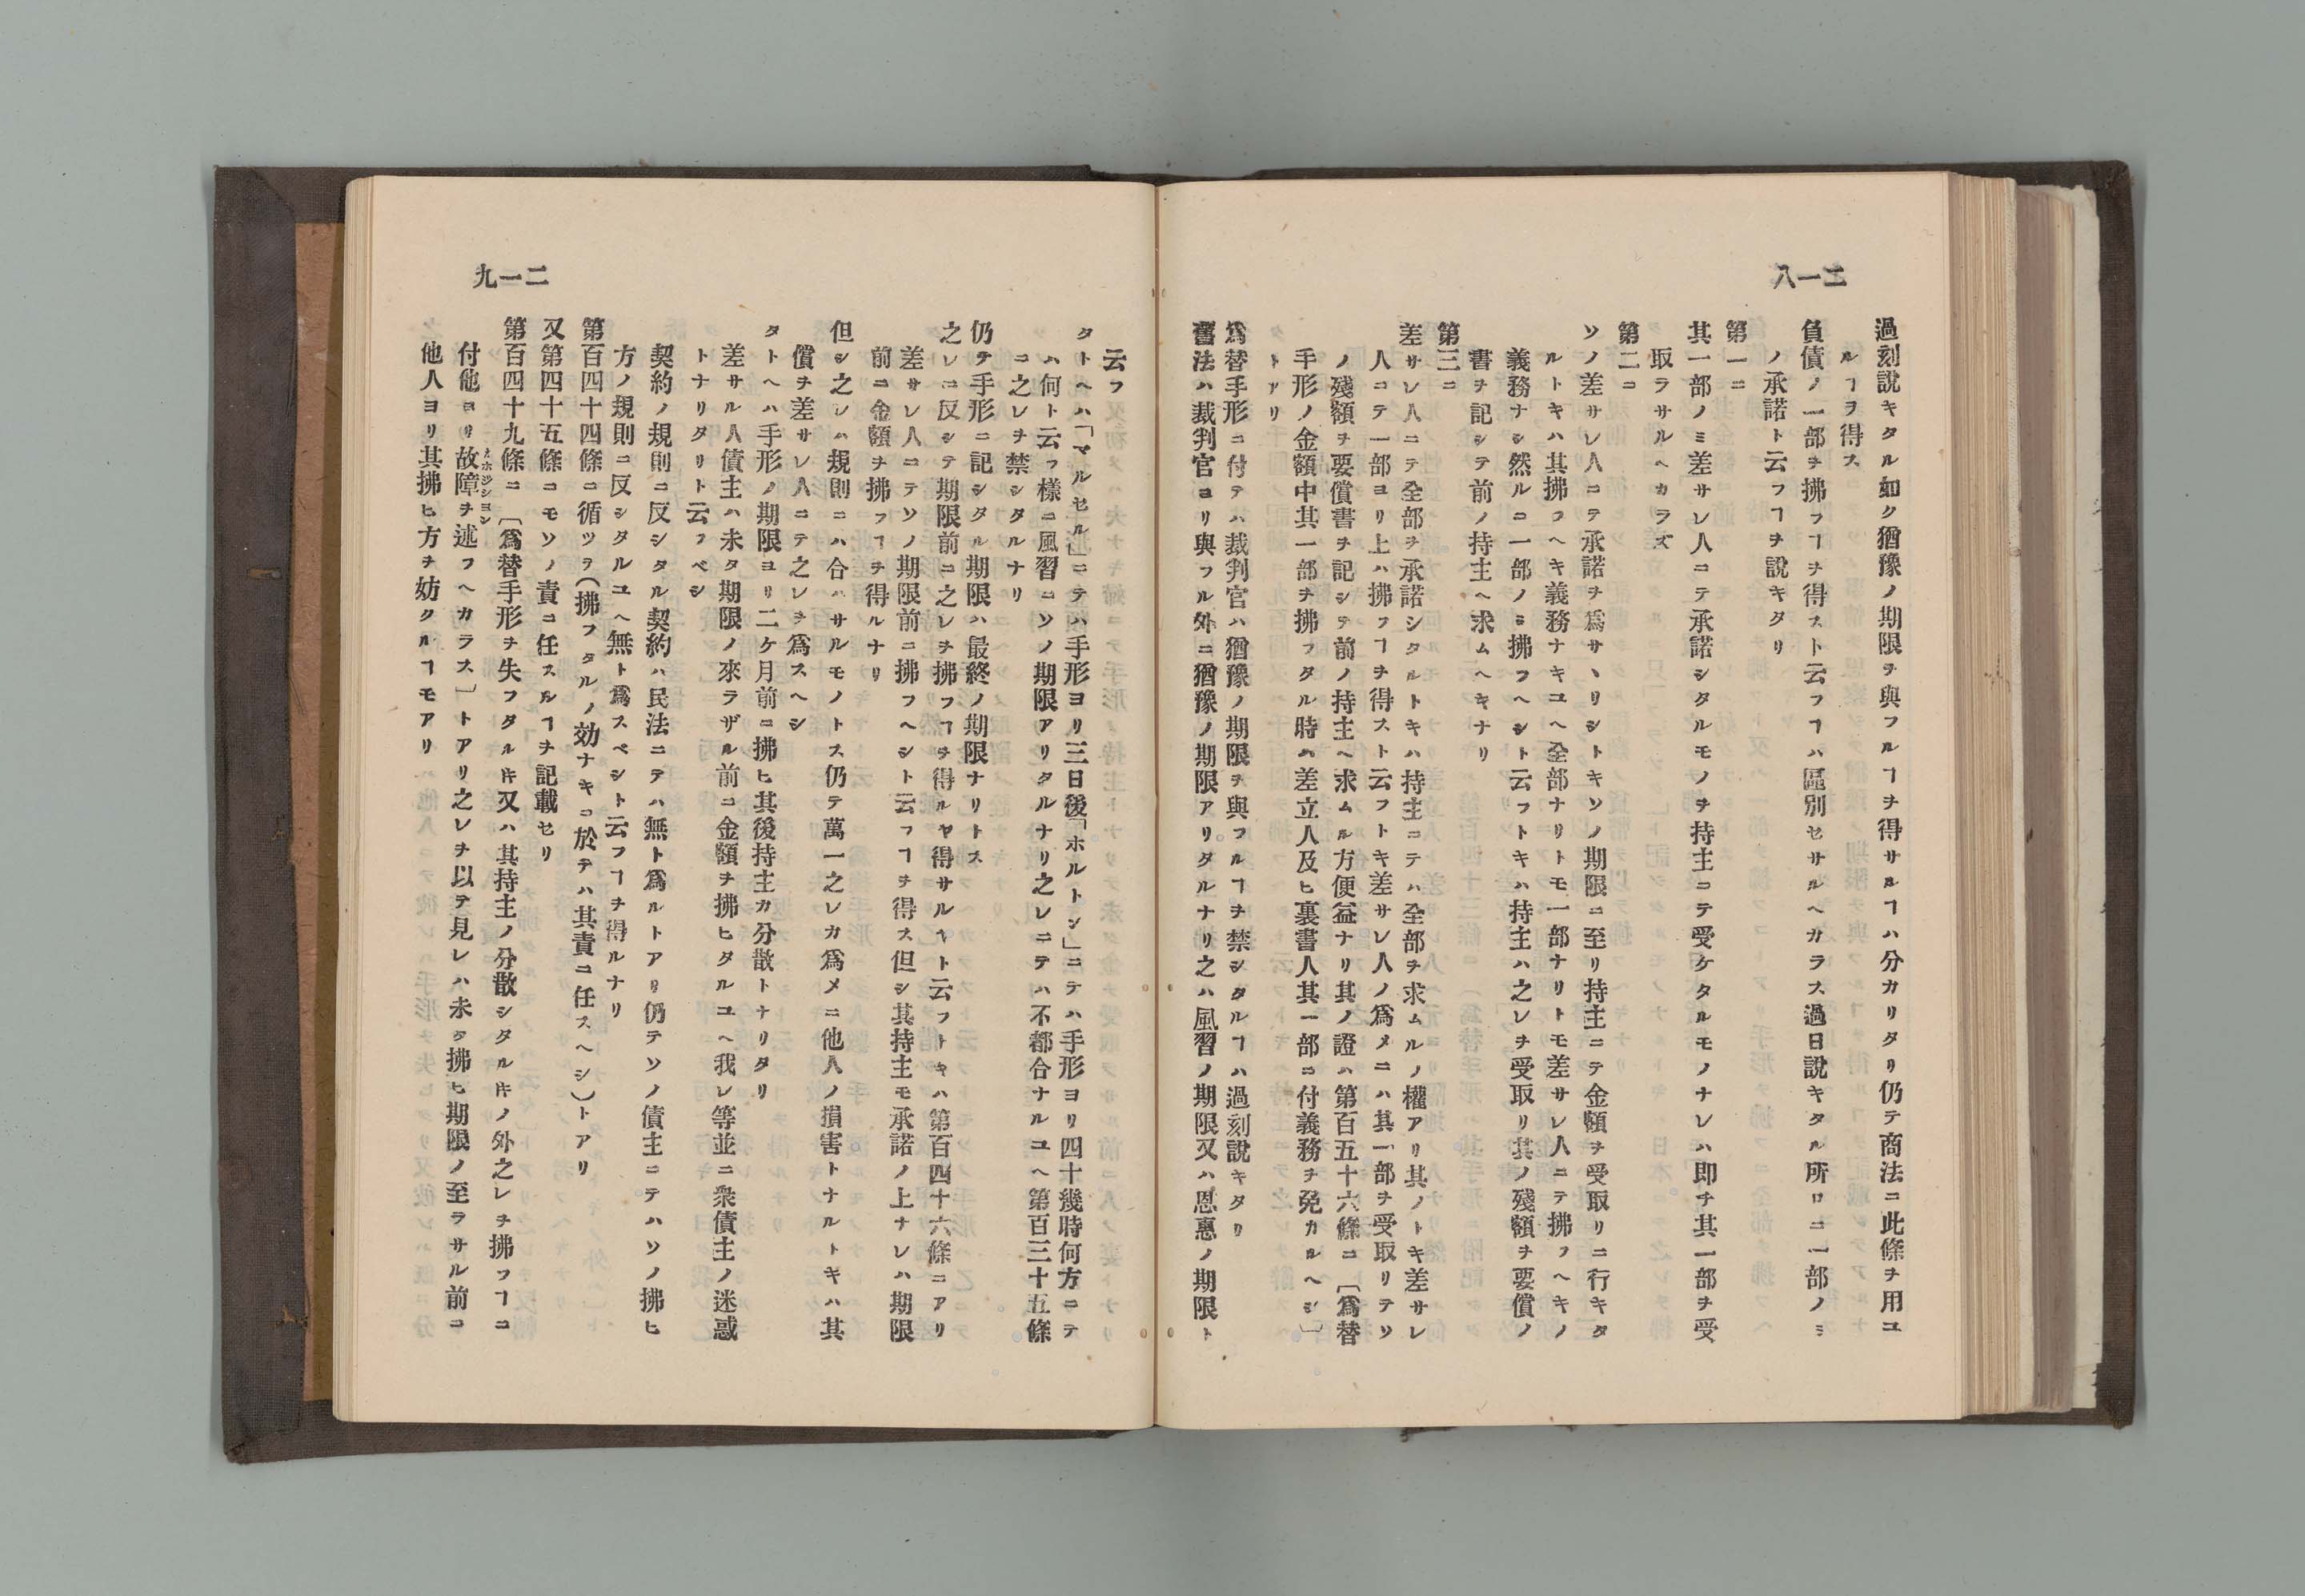 二一八
過刻說キタル如ク猶豫ノ期限ヲ與フルヿヲ得サルヿハ分カリタリ仍テ商法ニ此條ヲ用ユ
ルヿヲ得ス
負債ノ一部ヲ拂フヿヲ得スト云フヿハ區別セサルヘカラス過日說キタル所ロニ一部ノミ
ノ承諾ト云フヿヲ說キタリ
第一ニ
其一部ノミ差サレ人ニテ承諾シタルモノヲ持主ニテ受ケタルモノナレハ即チ其一部ヲ受
取ラサルヘカラズ
第二ニ
ソノ差サレ人ニテ承諾ヲ爲サヽリシトキソノ期限ニ至リ持主ニテ金額ヲ受取リニ行キタ
ルトキハ其拂フヘキ義務ナキユヘ全部ナリトモ一部ナリトモ差サレ人ニテ拂フヘキノ
義務ナシ然ルニ一部ノミ拂フヘシト云フトキハ持主ハ之レヲ受取リ其ノ殘額ヲ要償ノ
書ヲ記シテ前ノ持主ヘ求ムヘキナリ
第三ニ
差サレ人ニテ全部ヲ承諾シタルトキハ持主ニテハ全部ヲ求ムルノ權アリ其ノトキ差サレ
人ニテ一部ヨリ上ハ拂フヿヲ得スト云フトキ差サレ人ノ爲メニハ其一部ヲ受取リテソ
ノ殘額ヲ要償書ヲ記シテ前ノ持主ヘ求ムル方便益ナリ其ノ證ハ第百五十六條ニ〔爲替
手形ノ金額中其一部ヲ拂フタル時ハ差立人及ヒ裏書人其一部ニ付義務ヲ免カルヘシ〕
トアリ
爲替手形ニ付テハ裁判官ハ猶豫ノ期限ヲ與フルヿヲ禁シタルヿハ過刻說キタリ
舊法ハ裁判官ヨリ與フル外ニ猶豫ノ期限アリタルナリ之ハ風習ノ期限又ハ恩惠ノ期限ト
二一九
云フ
タトヘハ「マルセル」ニテハ手形ヨリ三日後「ホルトン」ニテハ手形ヨリ四十幾時何方ニテ
ハ何ト云フ樣ニ風習ニソノ期限アリタルナリ之レニテハ不都合ナルユヘ第百三十五條
ニ之レヲ禁シタルナリ
仍テ手形ニ記シタル期限ハ最終ノ期限ナリトス
之レニ反シテ期限前ニ之レヲ拂フヿヲ得ルヤ得サルヤト云フトキハ第百四十六條ニアリ
差サレ人ニテソノ期限前ニ拂フヘシト云フヿヲ得ス但シ其持主モ承諾ノ上ナレハ期限
前ニ金額ヲ拂フヿヲ得ルナリ
但シ之レハ規則ニハ合ハサルモノトス仍テ萬一之レカ爲メニ他人ノ損害トナルトキハ其
償ヲ差サレ人ニテ之レヲ爲スヘシ
タトヘハ手形ノ期限ヨリ二ケ月前ニ拂ヒ其後持主カ分散トナリタリ
差サル人債主ハ未タ期限ノ來ラザル前ニ金額ヲ拂ヒタルユヘ我レ等並ニ衆債主ノ迷惑
トナリタリト云フベシ
契約ノ規則ニ反シタル契約ハ民法ニテハ無ト爲ルトアリ仍テソノ債主ニテハソノ拂ヒ
方ノ規則ニ反シタルユヘ無ト爲スベシト云フヿヲ得ルナリ
第百四十四條ニ循ツテ(拂フタルノ効ナキニ於テハ其責ニ任スヘシ)トアリ
又第四十五條ニモソノ責ニ任スルヿヲ記載セリ
第百四十九條ニ〔爲替手形ヲ失フタルキ又ハ其持主ノ分散シタルキノ外之レヲ拂フヿニ
付他ヨリ故障ヲ述フヘカラス〕トアリ之レヲ以テ見レハ未タ拂ヒ期限ノ至ラサル前ニ
他人ヨリ其拂ヒ方ヲ妨クルヿモアリ